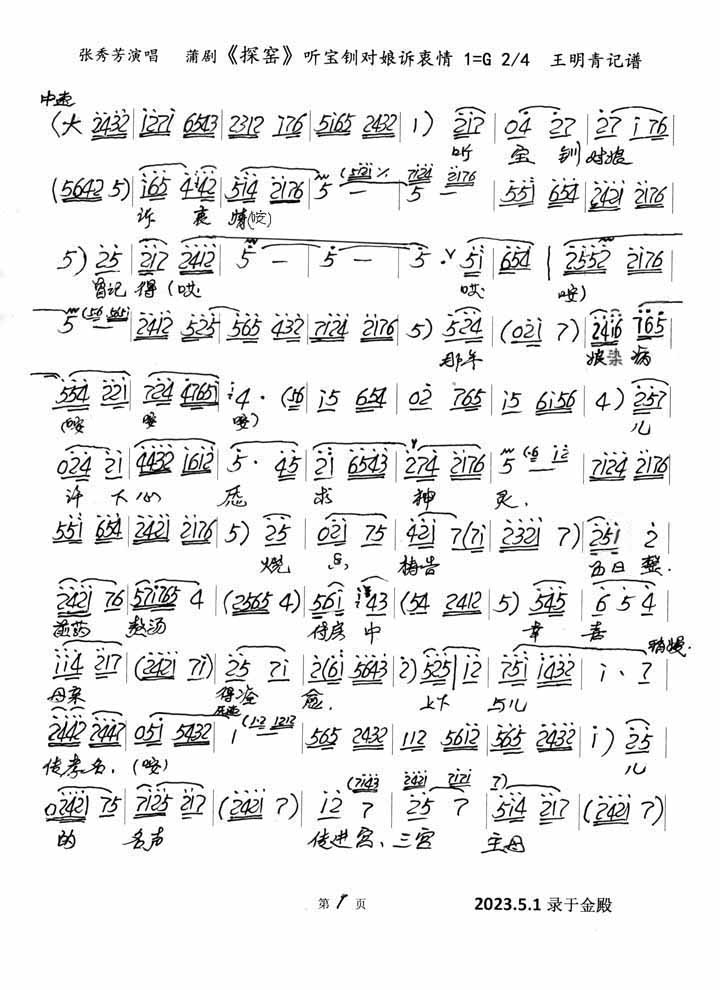 张秀芳演唱 蒲剧《探窑》听宝钏对娘诉衷情 1=G 2/4 王明青记谱
中速
(大 2432 1271 6543 2312 176 5165 2432 1) 217 04 27 27 1 76
听 宝 钏 对娘
(5642 5) 165 4142 514 2176 5 — 5 — 551 654 2421 2176
诉 衷 情(咹)
5) 25 217 2412 5 — 5 — 5 · 51 654 2552 2176
曾记 得(哎 哎 咹)
5 — 2412 525 565 432 7124 2176 5) 524 (021 7) 2416 765
那年 娘染病
554 221 724 47651 4 · (56 15 654 02 765 15 6156 4) 257
(咹 咹 咹) 儿
024 21 4432 1612 5 · 45 21 6543 274 2176 5 — 7124 2176
许 大 心 愿 求 神 灵.
551 654 2421 2176 5) 25 021 75 421 7(71 2321 7) 251 2
烧 祷告 百日整.
2421 76 57165 4 (2565 4) 561 43 (54 2412 5) 545 6 5 4
煎药 熬汤 侍房中 幸喜
稍慢.
114 217 (2421 71) 25 71 2(61 5643 2) 525 12 751 1432 1 · 7
母亲 得治 愈. 上下 与儿
2442 2447 051 5432 1 — 565 2432 112 5612 565 2432 1) 25
传孝名. (咹) 儿
02421 75 7125 217 (2421 7) 12 7 25 7 514 217 (2421 7)
的 名声 传进宫、三宫 主母
第 1 页 2023.5.1 录于金殿